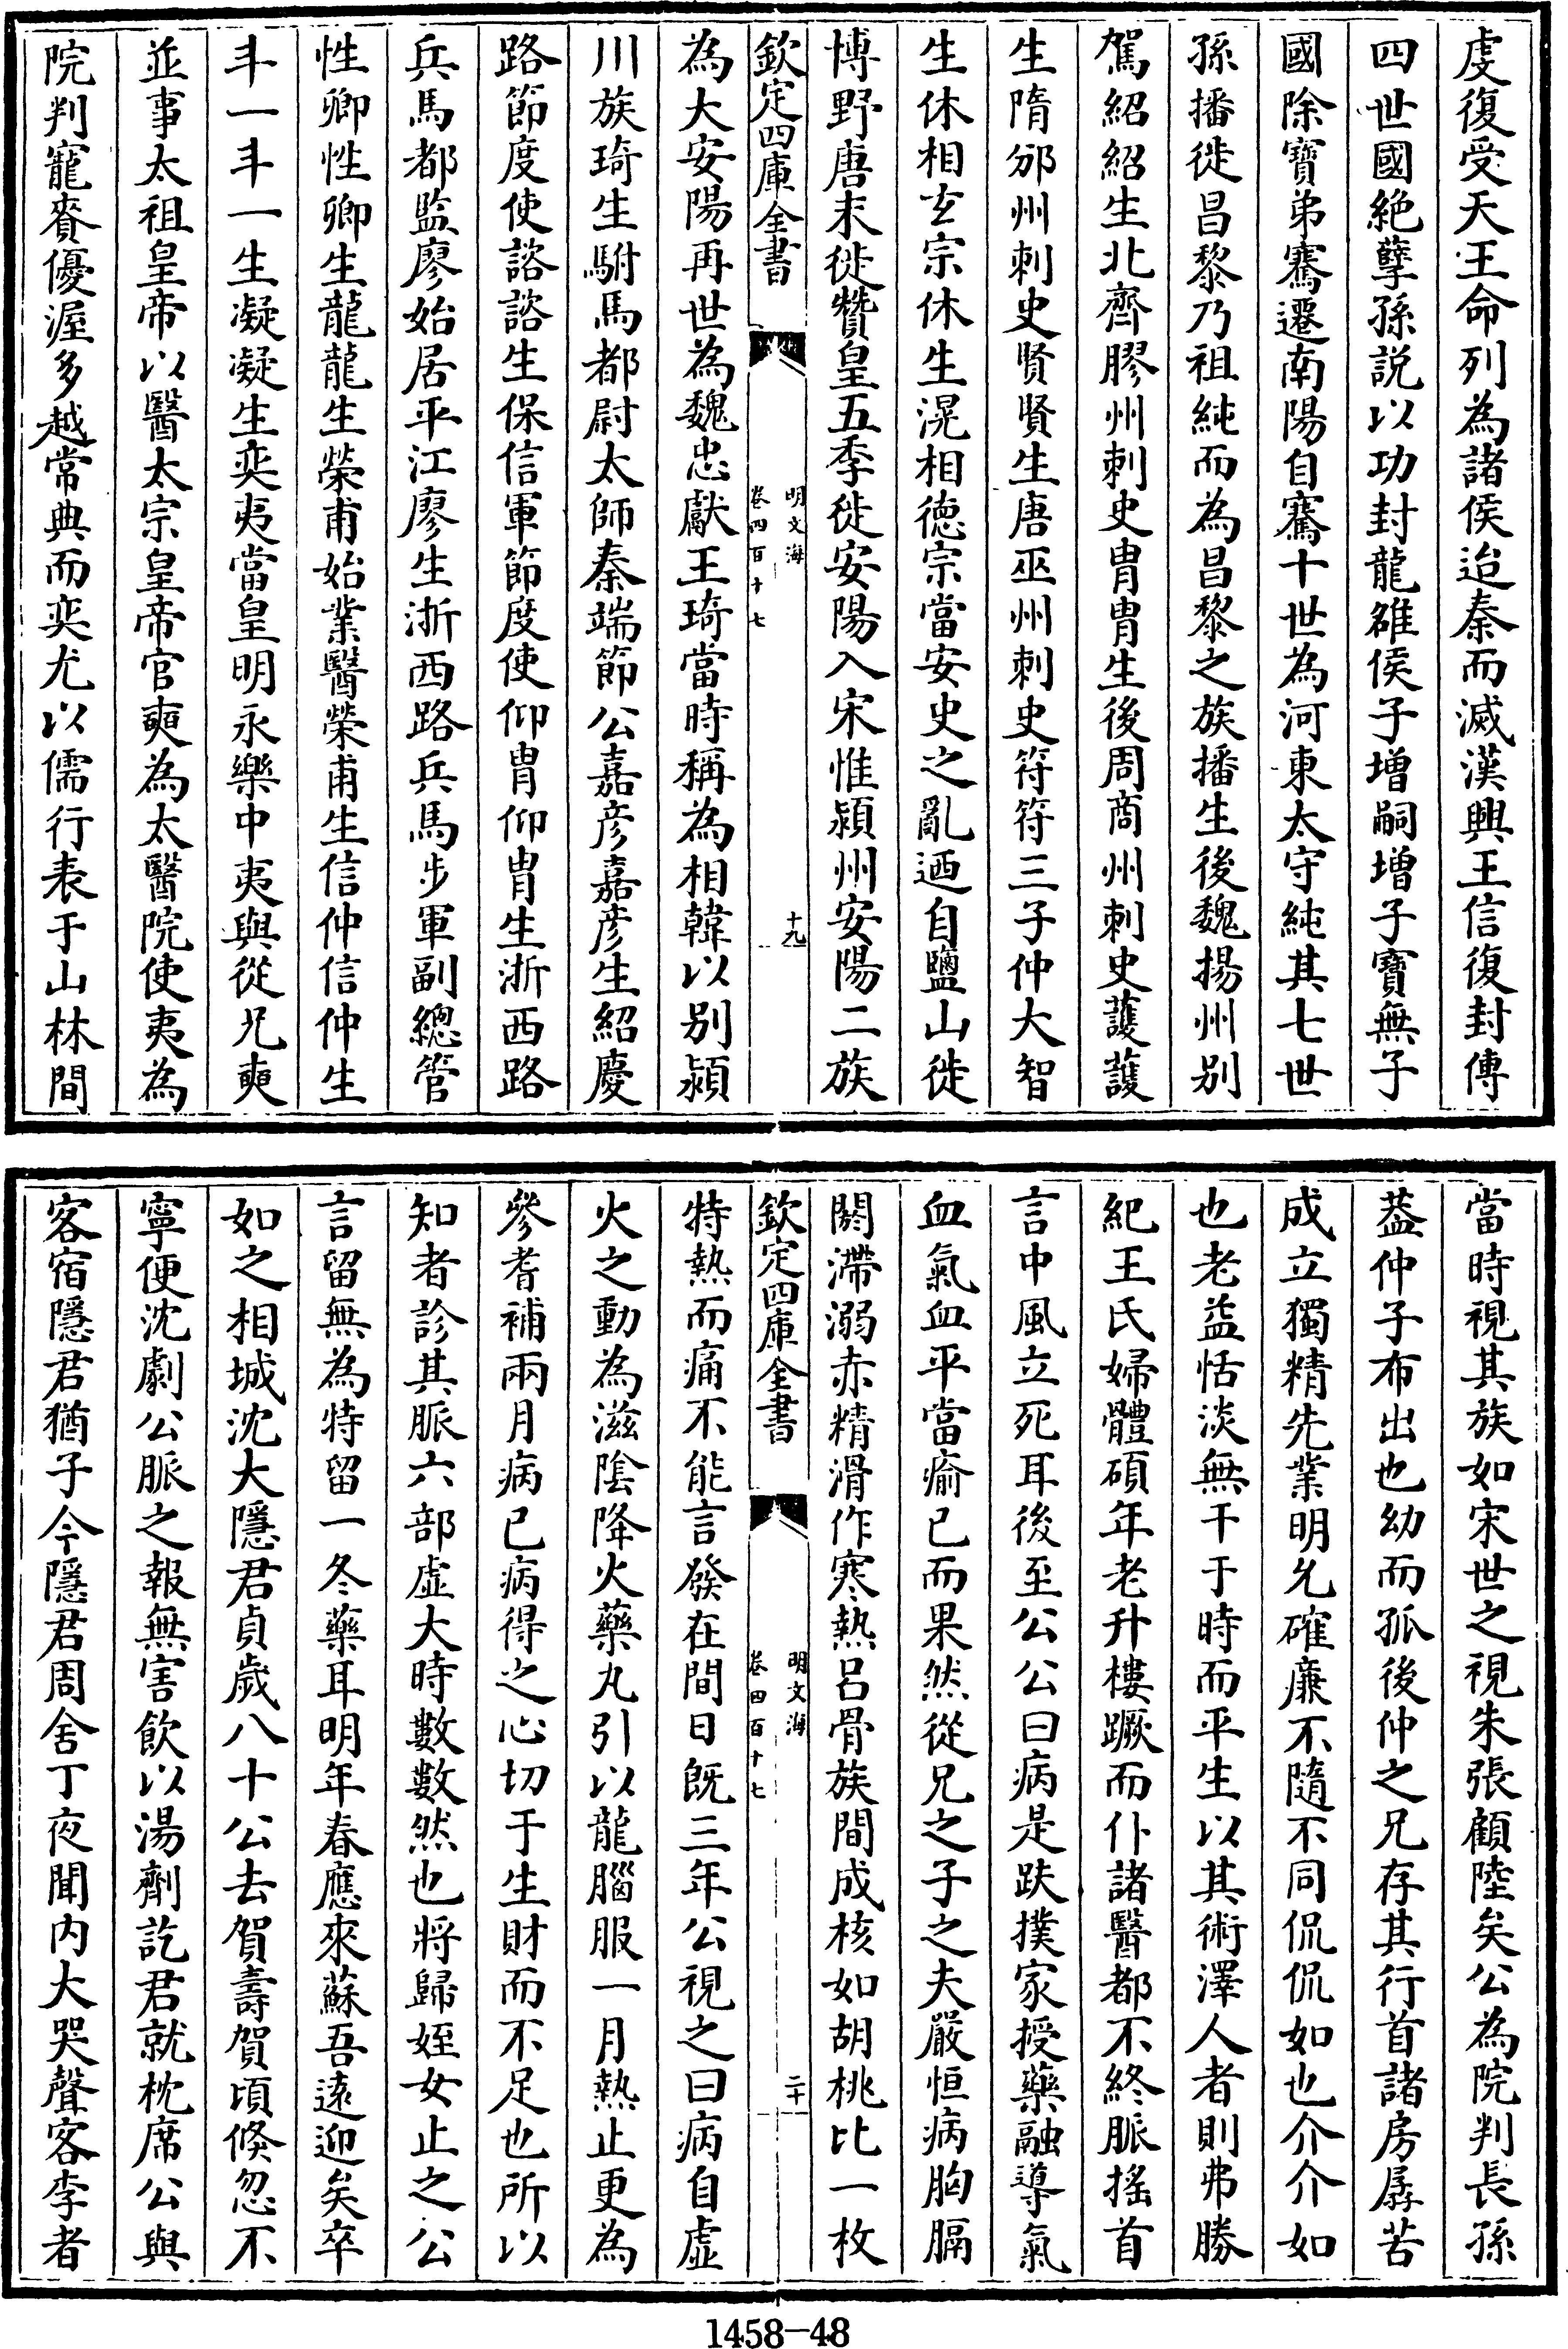 虔復受天王命列為諸侯迨秦而滅漢興王信復封傳
四世國絶孽孫説以功封龍雒侯子増嗣増子寶無子
國除寶弟騫遷南陽自騫十世為河東太守純其七世
孫播徙昌黎乃祖純而為昌黎之族播生後魏揚州别
駕紹紹生北齊膠州刺史胄胄生後周商州刺史護護
生隋邠州刺史賢賢生唐巫州刺史符符三子仲大智
生休相玄宗休生滉相徳宗當安史之亂迺自鹽山徙
博野唐末徙贊皇五季徙安陽入宋惟潁州安陽二族
欽定四庫全書
明文海
卷四百十七
十九
為大安陽再世為魏忠獻王琦當時稱為相韓以别潁
川族琦生駙馬都尉太師秦端節公嘉彦嘉彦生紹慶
路節度使諮諮生保信軍節度使仰胄仰胄生浙西路
兵馬都監廖始居平江廖生浙西路兵馬步軍副總管
性卿性卿生龍龍生榮甫始業醫榮甫生信仲信仲生
斗一斗一生凝凝生奕夷當皇明永樂中夷與從兄奭
並事太祖皇帝以醫太宗皇帝官奭為太醫院使夷為
院判寵賚優渥多越常典而奕尤以儒行表于山林間
當時視其族如宋世之視朱張顧陸矣公為院判長孫
葢仲子布出也幼而孤後仲之兄存其行首諸房孱苦
成立獨精先業明允確亷不隨不同侃侃如也介介如
也老益恬淡無干于時而平生以其術澤人者則弗勝
紀王氏婦體碩年老升樓蹶而仆諸醫都不終脈揺首
言中風立死耳後至公公曰病是趺撲家授藥融導氣
血氣血平當瘉已而果然從兄之子之夫嚴恒病胸膈
閼滯溺赤精滑作寒熱呂骨族間成核如胡桃比一枚
欽定四庫全書
明文海
卷四百十七
二十
特熱而痛不能言發在間日既三年公視之曰病自虚
火之動為滋隂降火藥丸引以龍腦服一月熱止更為
參耆補兩月病已病得之心切于生財而不足也所以
知者診其脈六部虚大時數數然也將歸姪女止之公
言留無為特留一冬藥耳明年春應來蘇吾遠迎矣卒
如之相城沈大隱君貞歲八十公去賀壽賀頃倐忽不
寧便沈劇公脈之報無害飲以湯劑訖君就枕席公與
客宿隱君猶子今隱君周舍丁夜聞内大哭聲客李者
1458-48